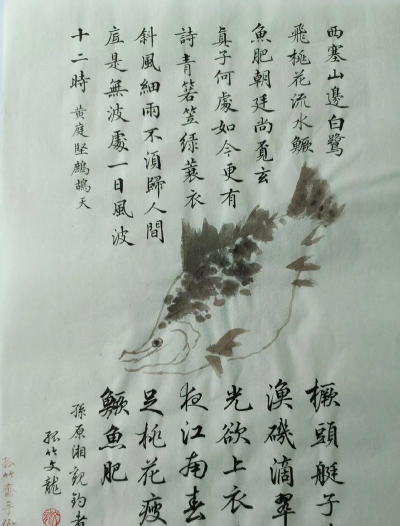 西塞山邊白鷺
飛桃花流水鱖
魚肥朝廷尚覓玄
真子何處如今更有
詩青箬笠绿蓑衣
斜風細雨不須歸人間
底是無波處一日風波
十二時 黄庭堅鷓鴣天
橛頭艇子
漁磯滴翠
光欲上衣
夜江南春
足桃花瘦
鱖魚肥
孫原湘觀釣者
孤竹文龍